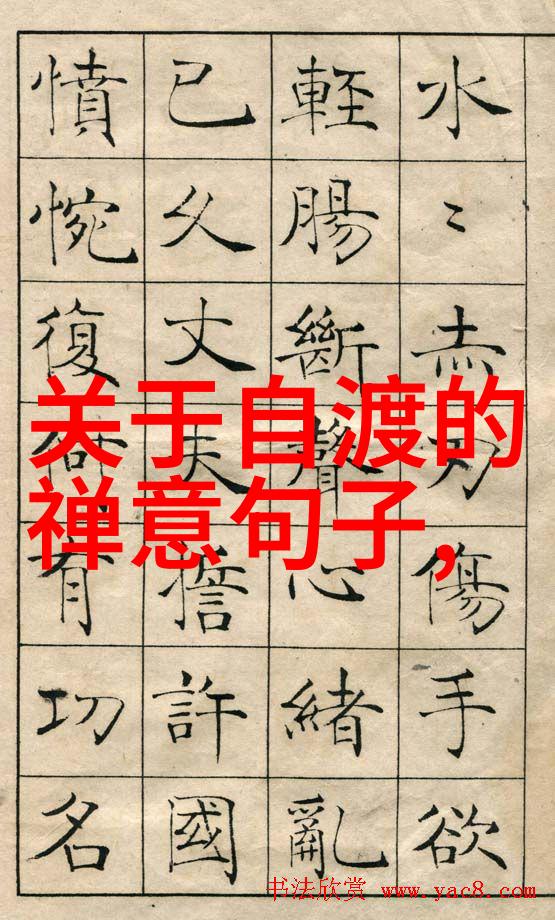 关于自渡的
禅意句子,
水〻赤刃傷手欲
輕腸斷聲心緒亂
已久丈夫誓許國
憤惋復何有功名
书法欣赏 www.yac8.com